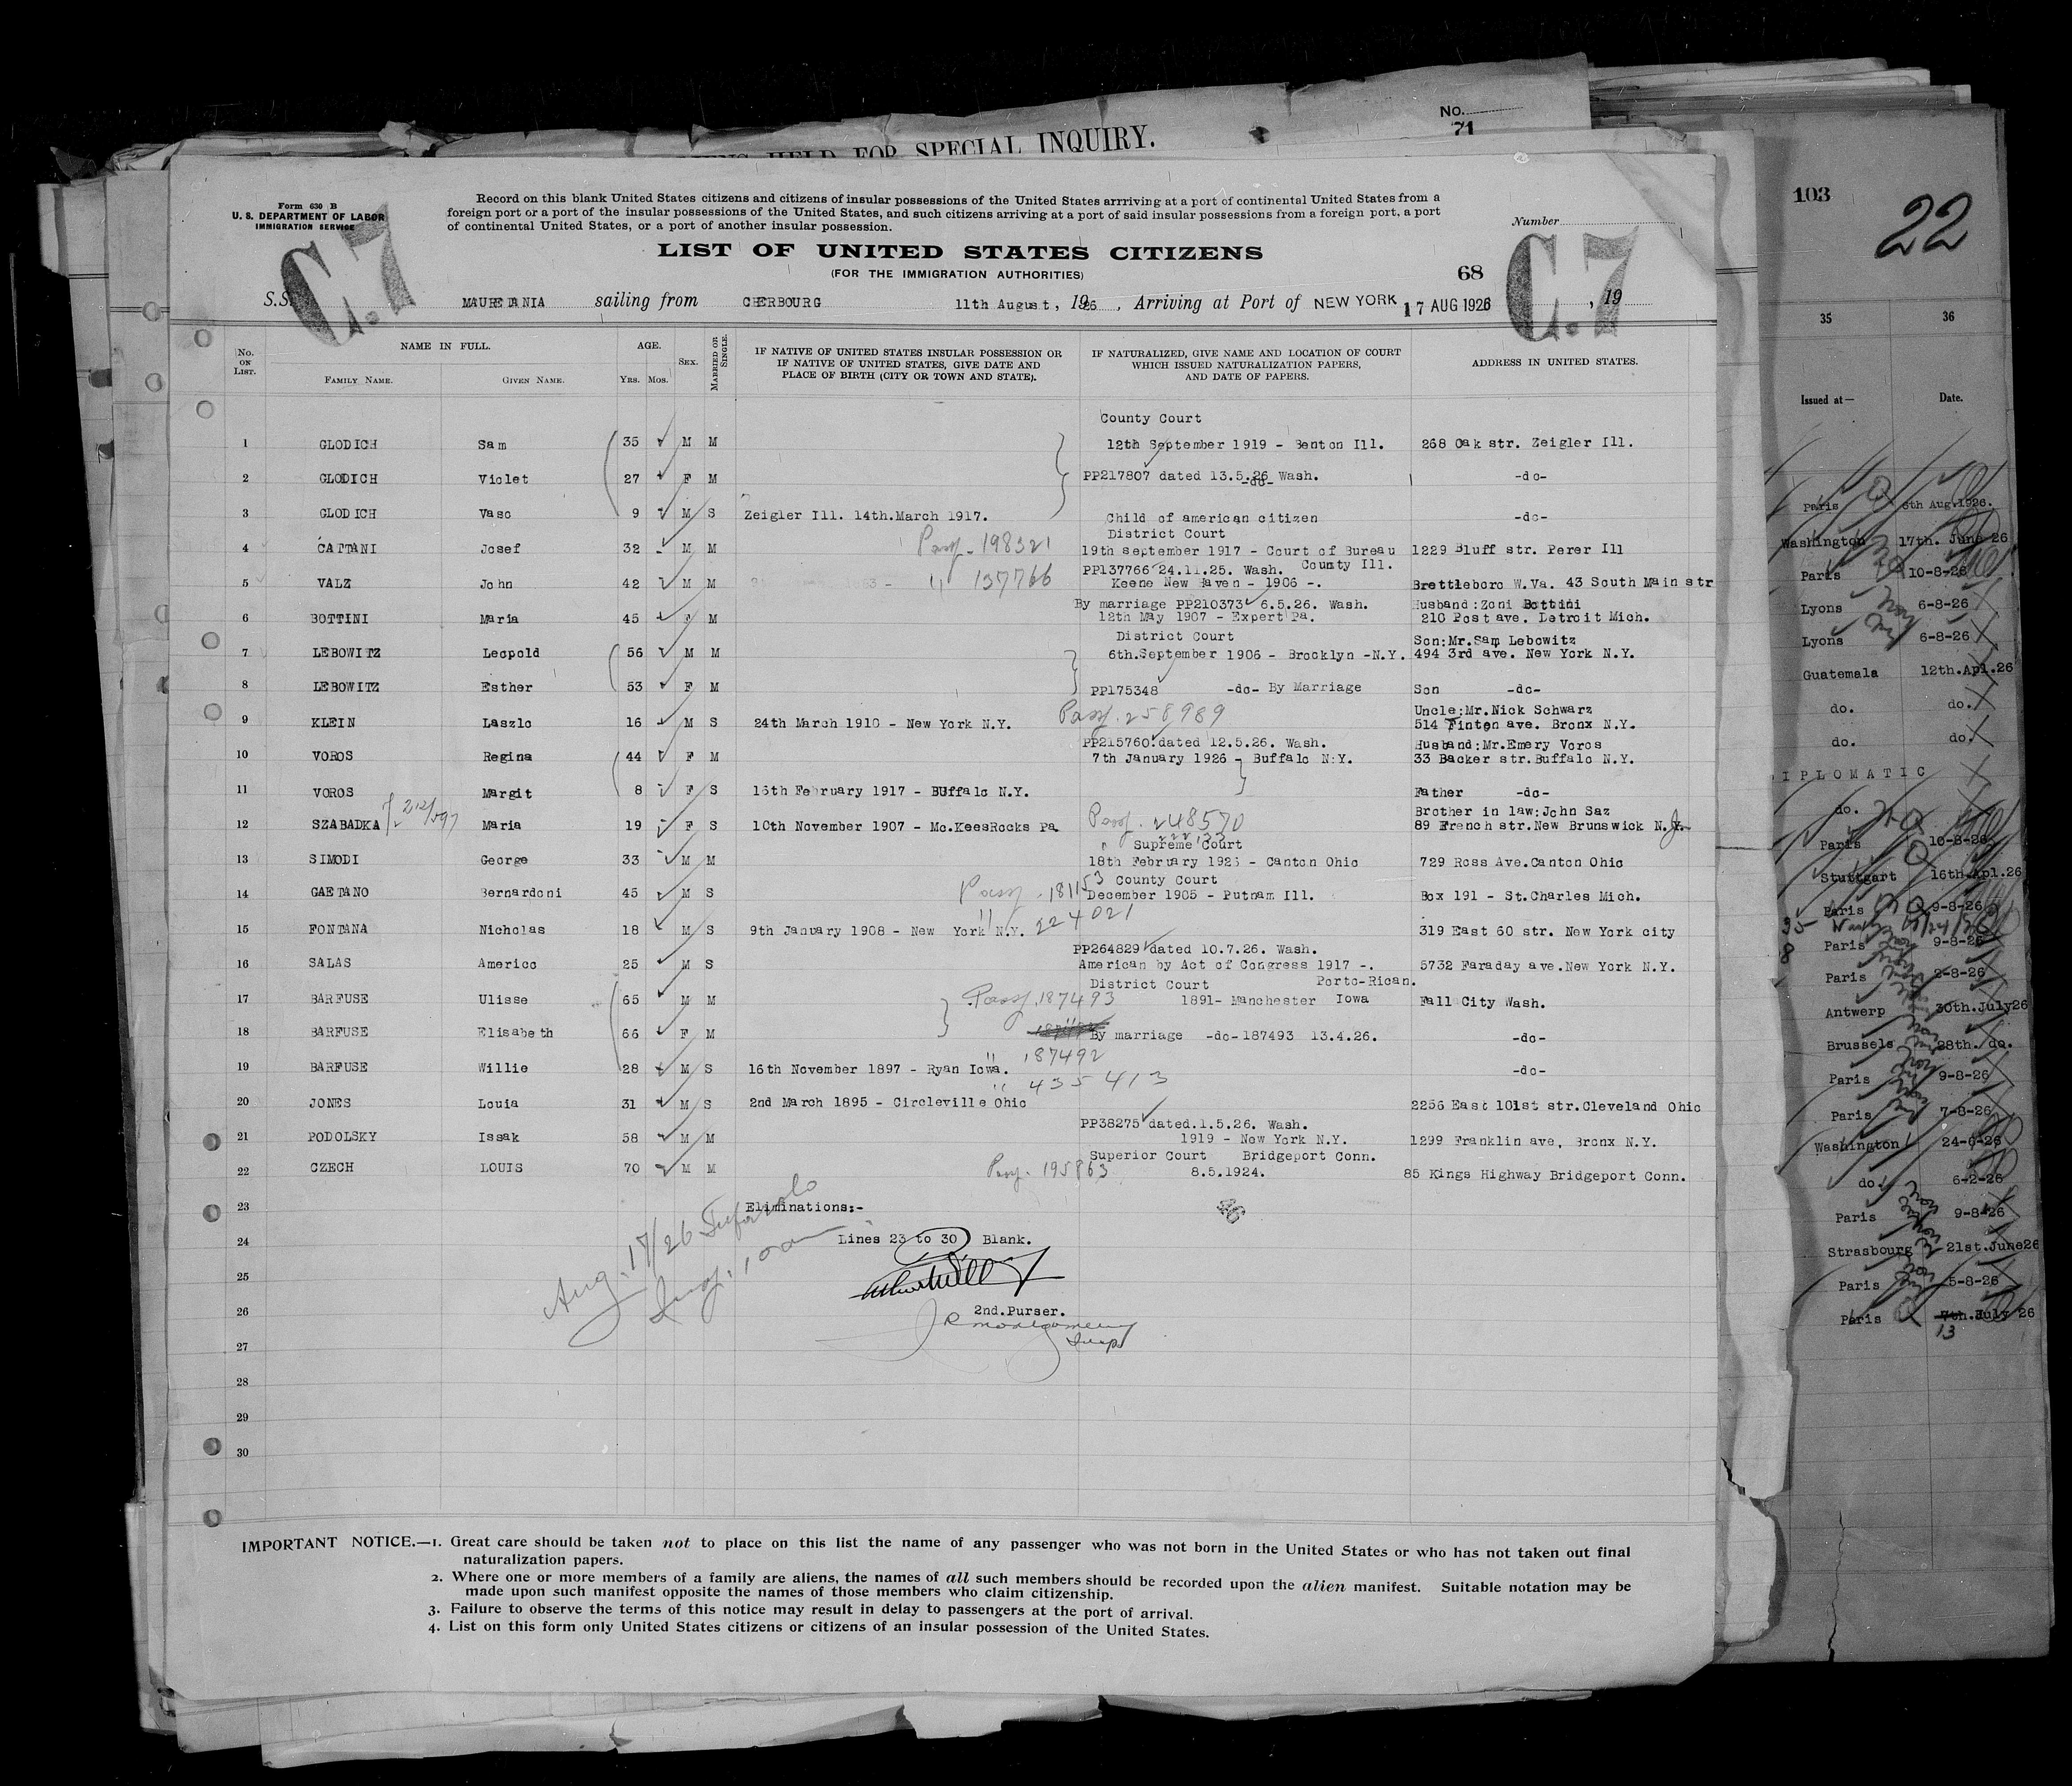 No.
71
HELD FOR SPECIAL INQUIRY.
103
22
Form 630 B
U. S. DEPARTMENT OF LABOR
IMMIGRATION SERVICE
C.7
Record on this blank United States citizens and citizens of insular possessions of the United States arrriving at a port of continental United States from a
foreign port or a port of the insular possessions of the United States, and such citizens arriving at a port of said insular possessions from a foreign port, a port
of continental United States, or a port of another insular possession.
Number
C.7
LIST OF UNITED STATES CITIZENS
(FOR THE IMMIGRATION AUTHORITIES)
68
S.S. MAURETANIA sailing from CHERBOURG 11th August, 1926, Arriving at Port of NEW YORK 17 AUG 1926, 19
No. ON LIST. NAME IN FULL. FAMILY NAME. GIVEN NAME. AGE. YRS. MOS. SEX. MARRIED OR SINGLE.
IF NATIVE OF UNITED STATES INSULAR POSSESSION OR
IF NATIVE OF UNITED STATES, GIVE DATE AND
PLACE OF BIRTH (CITY OR TOWN AND STATE).
IF NATURALIZED, GIVE NAME AND LOCATION OF COURT
WHICH ISSUED NATURALIZATION PAPERS,
AND DATE OF PAPERS.
ADDRESS IN UNITED STATES.
County Court
1 GLODICH Sam 35 M M 12th September 1919 - Benton Ill. 268 Oak str. Zeigler Ill.
2 GLODICH Violet 27 F M PP217807 dated 13.5.26 Wash. -do- -do-
3 GLODICH Vaso 9 M S Zeigler Ill. 14th.March 1917. Child of american citizen -do-
District Court
4 CATTANI Josef 32 M M Pass. 198321 19th september 1917 - Court of Bureau 1229 Bluff str. Perer Ill
PP137766 24.11.25. Wash. County Ill.
5 VALZ John 42 M M " 137766 Keene New Haven - 1906 -. Brettleboro W.Va. 43 South Main str
By marriage PP210373 6.5.26. Wash. Husband:Zoni Bottini
6 BOTTINI Maria 45 F M 12th May 1907 - Expert Pa. 210 Post ave. Detroit Mich.
District Court Son:Mr.Sam Lebowitz
7 LEBOWITZ Leopold 56 M M 6th.September 1906 - Brooklyn -N.Y. 494 3rd ave. New York N.Y.
8 LEBOWITZ Esther 53 F M PP175348 -do- By Marriage Son -do-
Pass. 258989 Uncle:Mr.Nick Schwarz
9 KLEIN Laszlo 16 M S 24th March 1910 - New York N.Y. 514 Tinton ave. Bronx N.Y.
PP215760.dated 12.5.26. Wash. Husband:Mr.Emery Voros
10 VOROS Regina 44 F M 7th January 1926 - Buffalo N.Y. 33 Backer str.Buffalo N.Y.
11 VOROS Margit 8 F S 15th February 1917 - BUffalo N.Y. Father -do-
Brother in law:John Saz
12 SZABADKA Maria 19 F S 10th November 1907 - Mc.KeesRocks Pa. Pass. 248570 89 French str.New Brunswick N.J.
Supreme Court
13 SIMODI George 33 M M 18th February 1925 - Canton Ohio 729 Ross Ave.Canton Ohio
County Court
14 GAETANO Bernardoni 45 M S Pass. 181153 December 1905 - Putnam Ill. Box 191 - St.Charles Mich.
15 FONTANA Nicholas 18 M S 9th January 1908 - New York N.Y. " 224021 319 East 60 str. New York city
PP264829 dated 10.7.26. Wash.
16 SALAS Americo 25 M S American by Act of Congress 1917 -. 5732 Faraday ave.New York N.Y.
District Court Porto-Rican.
17 BARFUSE Ulisse 65 M M Pass. 187493 1891- Manchester Iowa Fall City Wash.
18 BARFUSE Elisabeth 66 F M By marriage -do- 187493 13.4.26. -do-
19 BARFUSE Willie 28 M S 16th November 1897 - Ryan Iowa. " 187492 -do-
20 JONES Louia 31 M S 2nd March 1895 - Circleville Ohio " 435413 2256 East 101st str.Cleveland Ohio
PP38275 dated.1.5.26. Wash.
21 PODOLSKY Issak 58 M M 1919 - New York N.Y. 1299 Franklin ave, Bronx N.Y.
Superior Court Bridgeport Conn.
22 CZECH LOUIS 70 M M Pass. 195863 8.5.1924. 85 Kings Highway Bridgeport Conn.
23 Eliminations:-
24 Lines 23 to 30 Blank.
25
26 2nd.Purser.
JR Montgomery
Insp
Aug. 17/26
27
28
29
30
IMPORTANT NOTICE.—1. Great care should be taken not to place on this list the name of any passenger who was not born in the United States or who has not taken out final
naturalization papers.
2. Where one or more members of a family are aliens, the names of all such members should be recorded upon the alien manifest. Suitable notation may be
made upon such manifest opposite the names of those members who claim citizenship.
3. Failure to observe the terms of this notice may result in delay to passengers at the port of arrival.
4. List on this form only United States citizens or citizens of an insular possession of the United States.
35 36
Issued at— Date.
Paris 6th Aug.1926.
Washington 17th. June 26
Paris 10-8-26
Lyons 6-8-26
Lyons 6-8-26
Guatemala 12th.Apl.26
do. do.
do. do.
DIPLOMATIC
do.
Paris 10-8-26
Stuttgart 16th.Apl.26
Paris 9-8-26
Paris 9-8-26
Paris 2-8-26
Antwerp 30th.July26
Brussels 28th. do.
Paris 9-8-26
Paris 7-8-26
Washington 24-6-26
do. 6-2-26
Paris 9-8-26
Strasbourg 21st.June26
Paris 5-8-26
Paris 7th.July 26
13